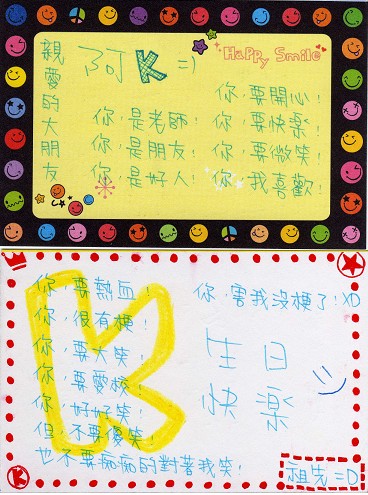 親愛的大朋友
阿K =)
Happy Smile
你,是老師!
你,是朋友!
你,是好人!
你,要開心!
你,要快樂!
你,要微笑!
你,我喜歡!
你,要熱血!
你,很有梗!
你,要大笑!
你,要愛被!
你,好好笑!
但,不要傻笑!
也不要痴痴的對著我笑!
你,害我沒梗了!XD
生日
快樂
祖先=D
K
K